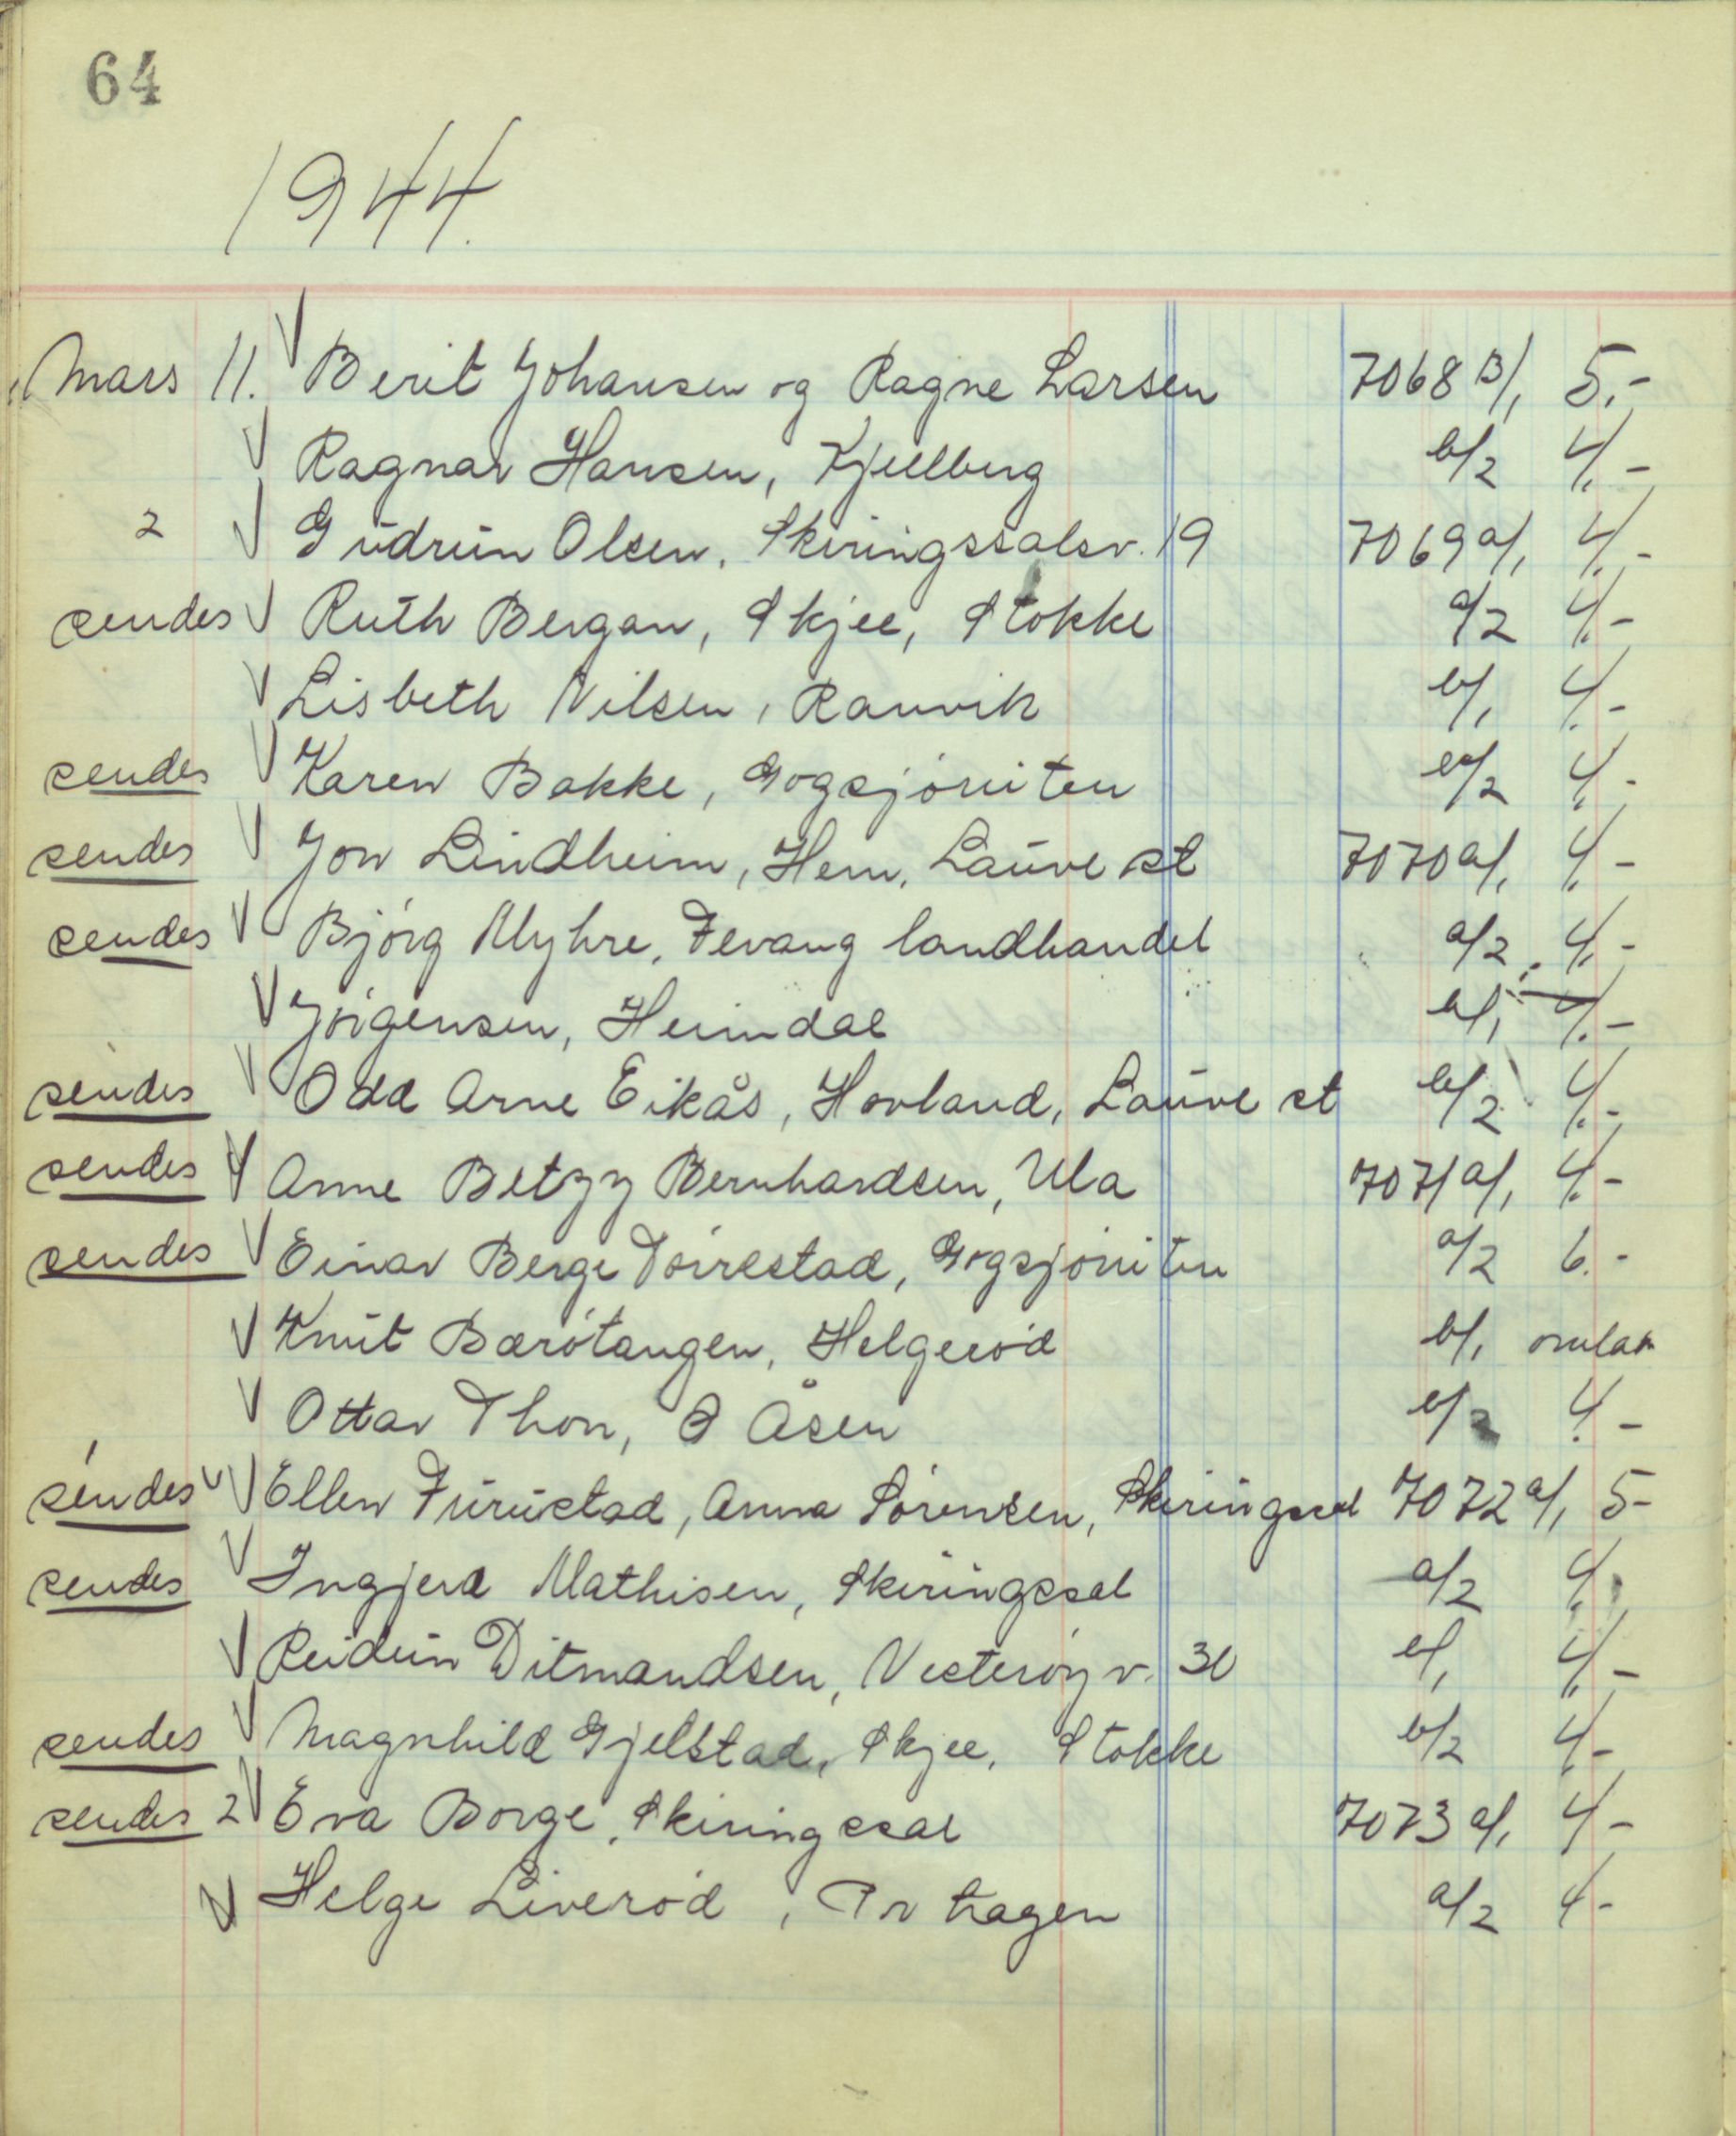 64
1944.
Mars 11. Berit Johansen og Ragne Larsen 7068 B/1 5.-
Ragnar Hansen, Kjellberg b/2 4.-
2 Gudrun Olsen, Skiringssalsv. 19 7069 a/1 4.-
sendes Ruth Bergan, Skjee, Stokke a/2 4.-
Lisbeth Nilsen, Ranvik b/1 4.-
sendes Karen Bakke, Gogsjøruten b/2 4.-
sendes Jon Lindheim, Hem, Lauve st 7070 a/1 4.-
sendes Bjørg Myhre, Fevang landhandel a/2 4.-
Jørgensen, Heimdal b/1 4.-
sendes Odd Arne Eikås, Hovland, Lauve st b/2 4.-
sendes Anne Betzy Bernhardsen, Ula 7071 a/1 4.-
sendes Einar Berge Torrestad, Gogsjøruten a/2 6.-
Knut Bærøtangen, Helgerød b/1 omlag
Ottar Thon, Åsen b/2 4.-
sendes Ellen Furustad, Anna Sørensen, Skiringssal 7072 a/1 5-
sendes Ingjerd Mathisen, Skiringssal a/2 4.
Reidun Ditmandsen, Vesterøy v. 30 b/1 4.-
sendes Magnhild Gjelstad, Skjee, Stokke b/2 4-
sendes 2 Eva Borge, Skiringssal 7073 a/1 4-
Helge Liverød, Pr hagen a/2 4-